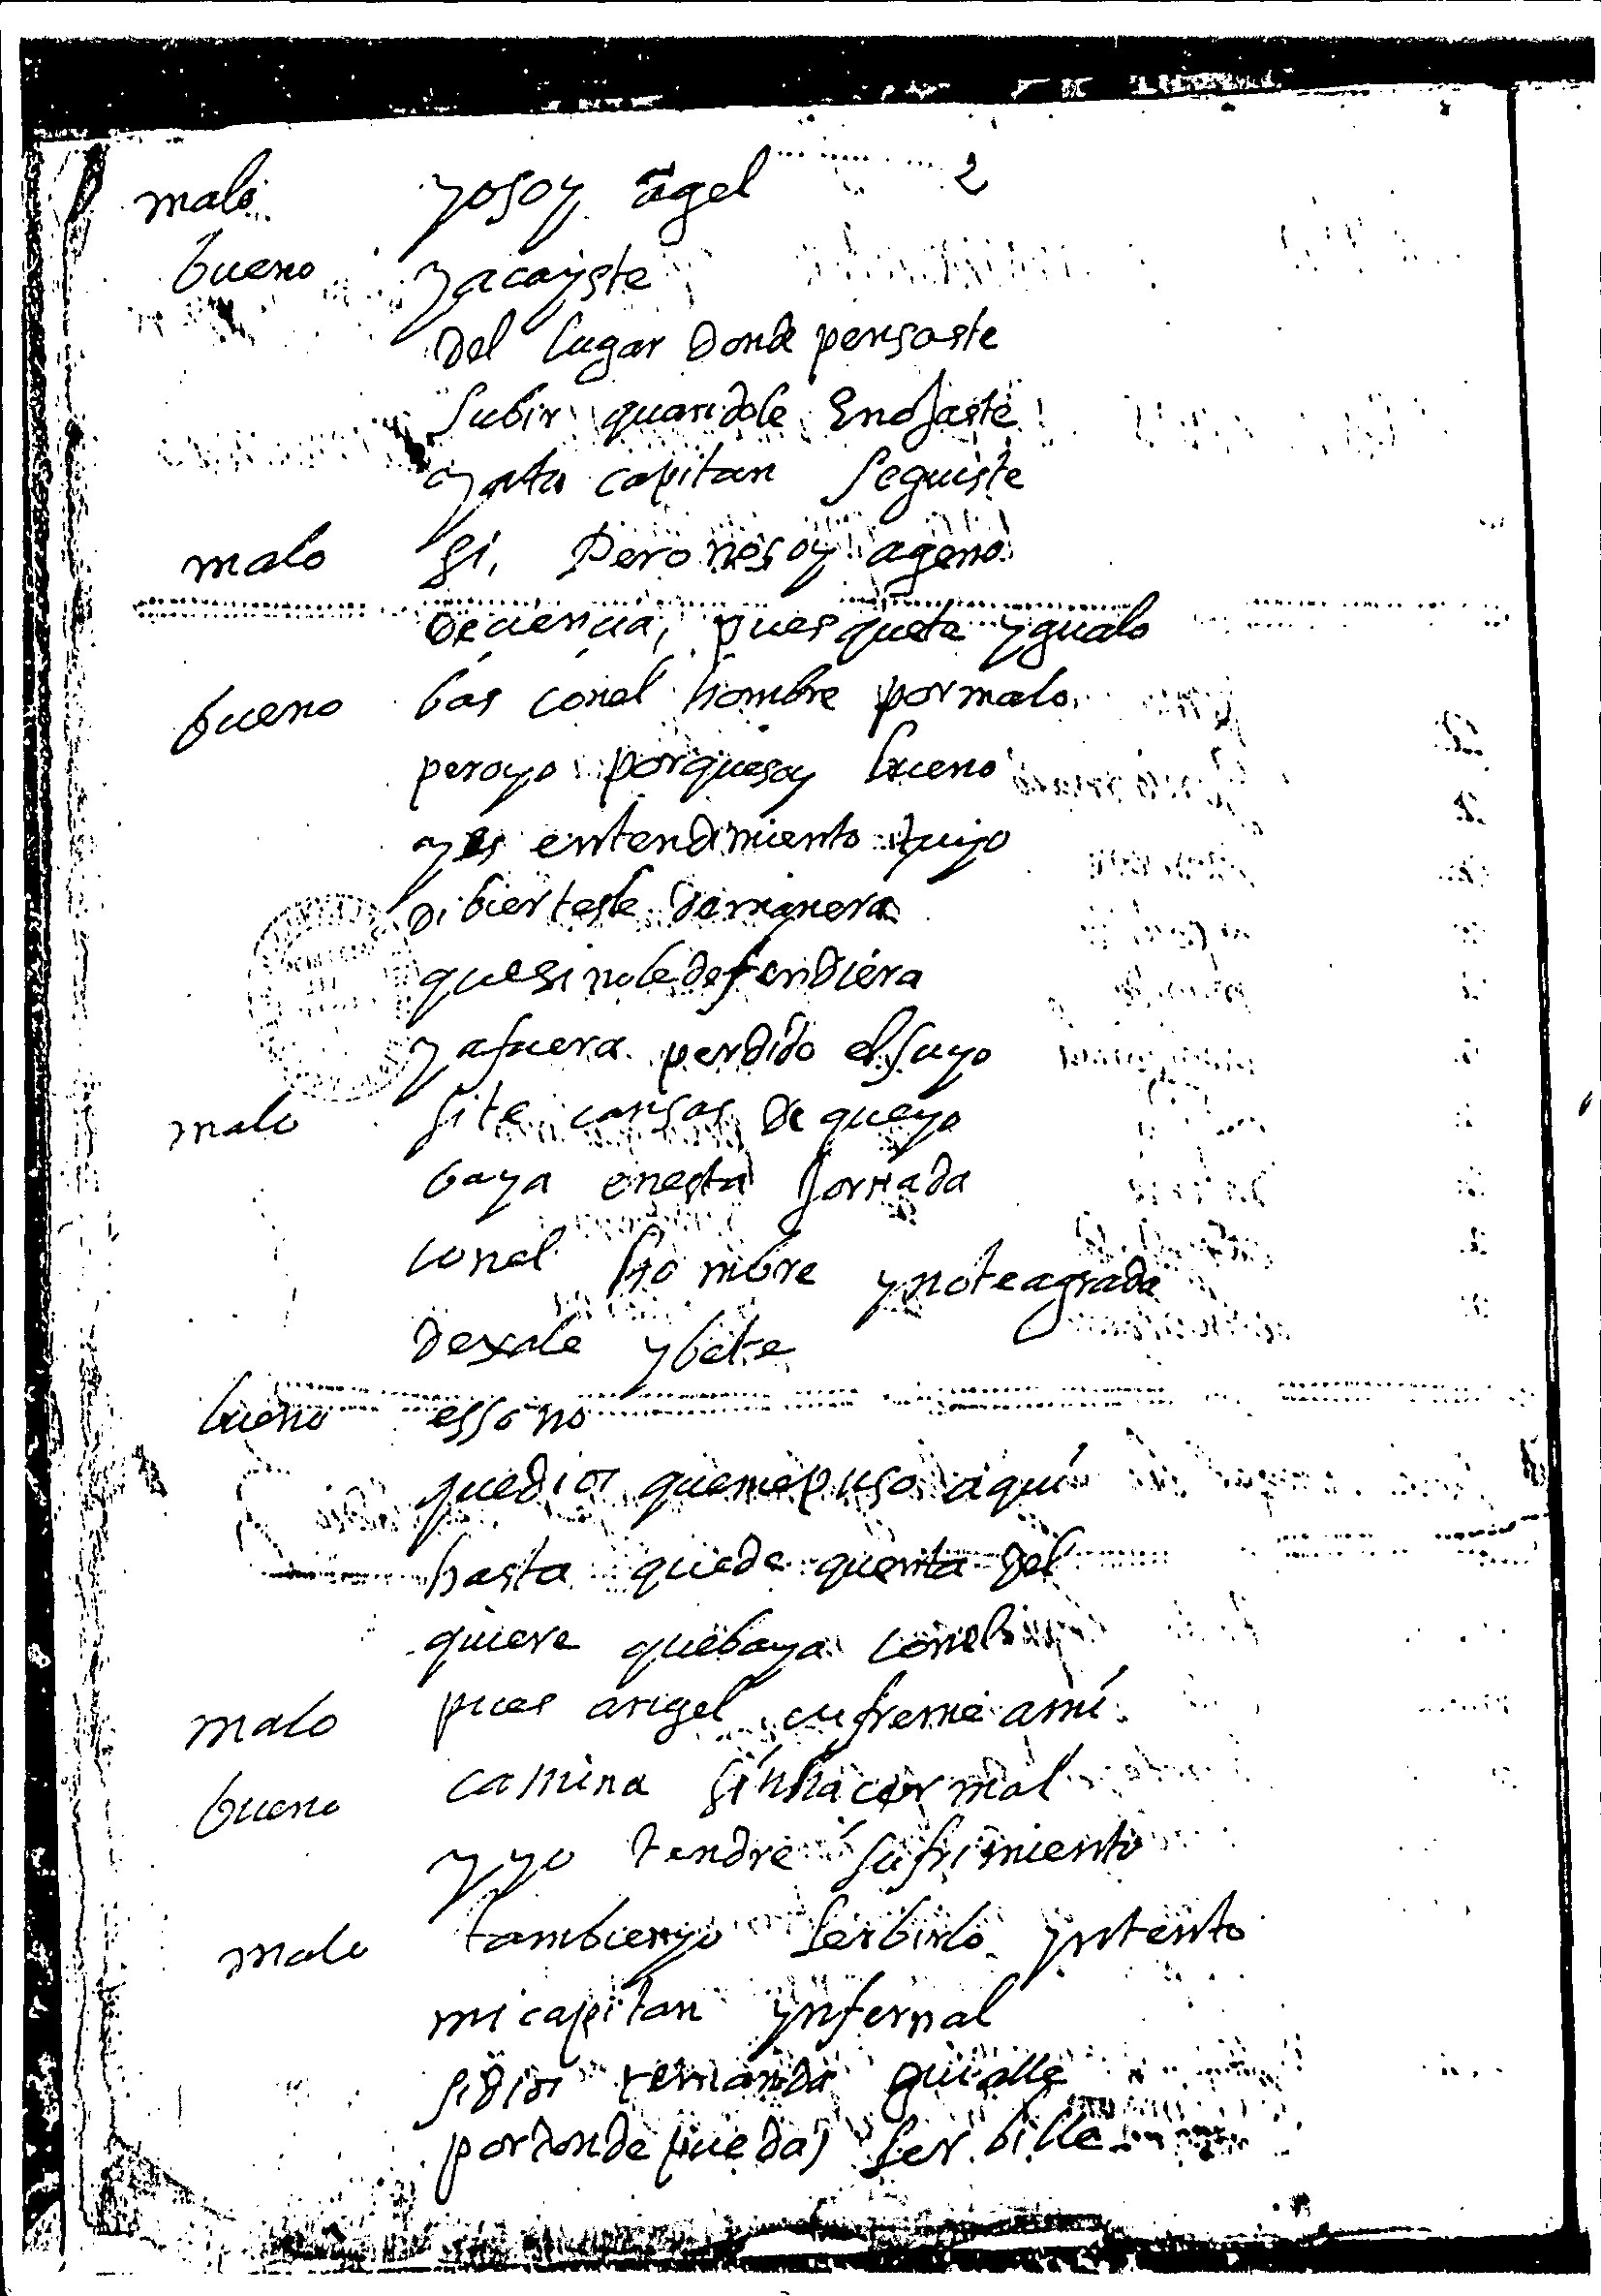 malo yo soy ãgel 2
bueno ya cayste
del lugar donde pensaste
subir quando le enojaste
y a tu capitan seguiste
malo si, pero no soy ageno
de ciencia, pues que te ygualo
bueno bas con el hombre por malo
pero yo porque soy bueno
y es entendimiento tuyo
dibiertesle de manera
que si no le defendiera
ya fuera perdido el suyo
malo si te cansas de que yo
baya en esta jornada
con el hombre y no te agrada
dexale y bete
bueno esso no
que dios que me puso aqui
hasta que de quenta del
quiere que baya con el
malo pues angel sufreme a mi
bueno camina sin hacer mal
y yo tendre sufrimiento
malo tambien yo serbirlo yntento
mi capitan ynfernal
si dios te manda guialle
por donde puedas serbille